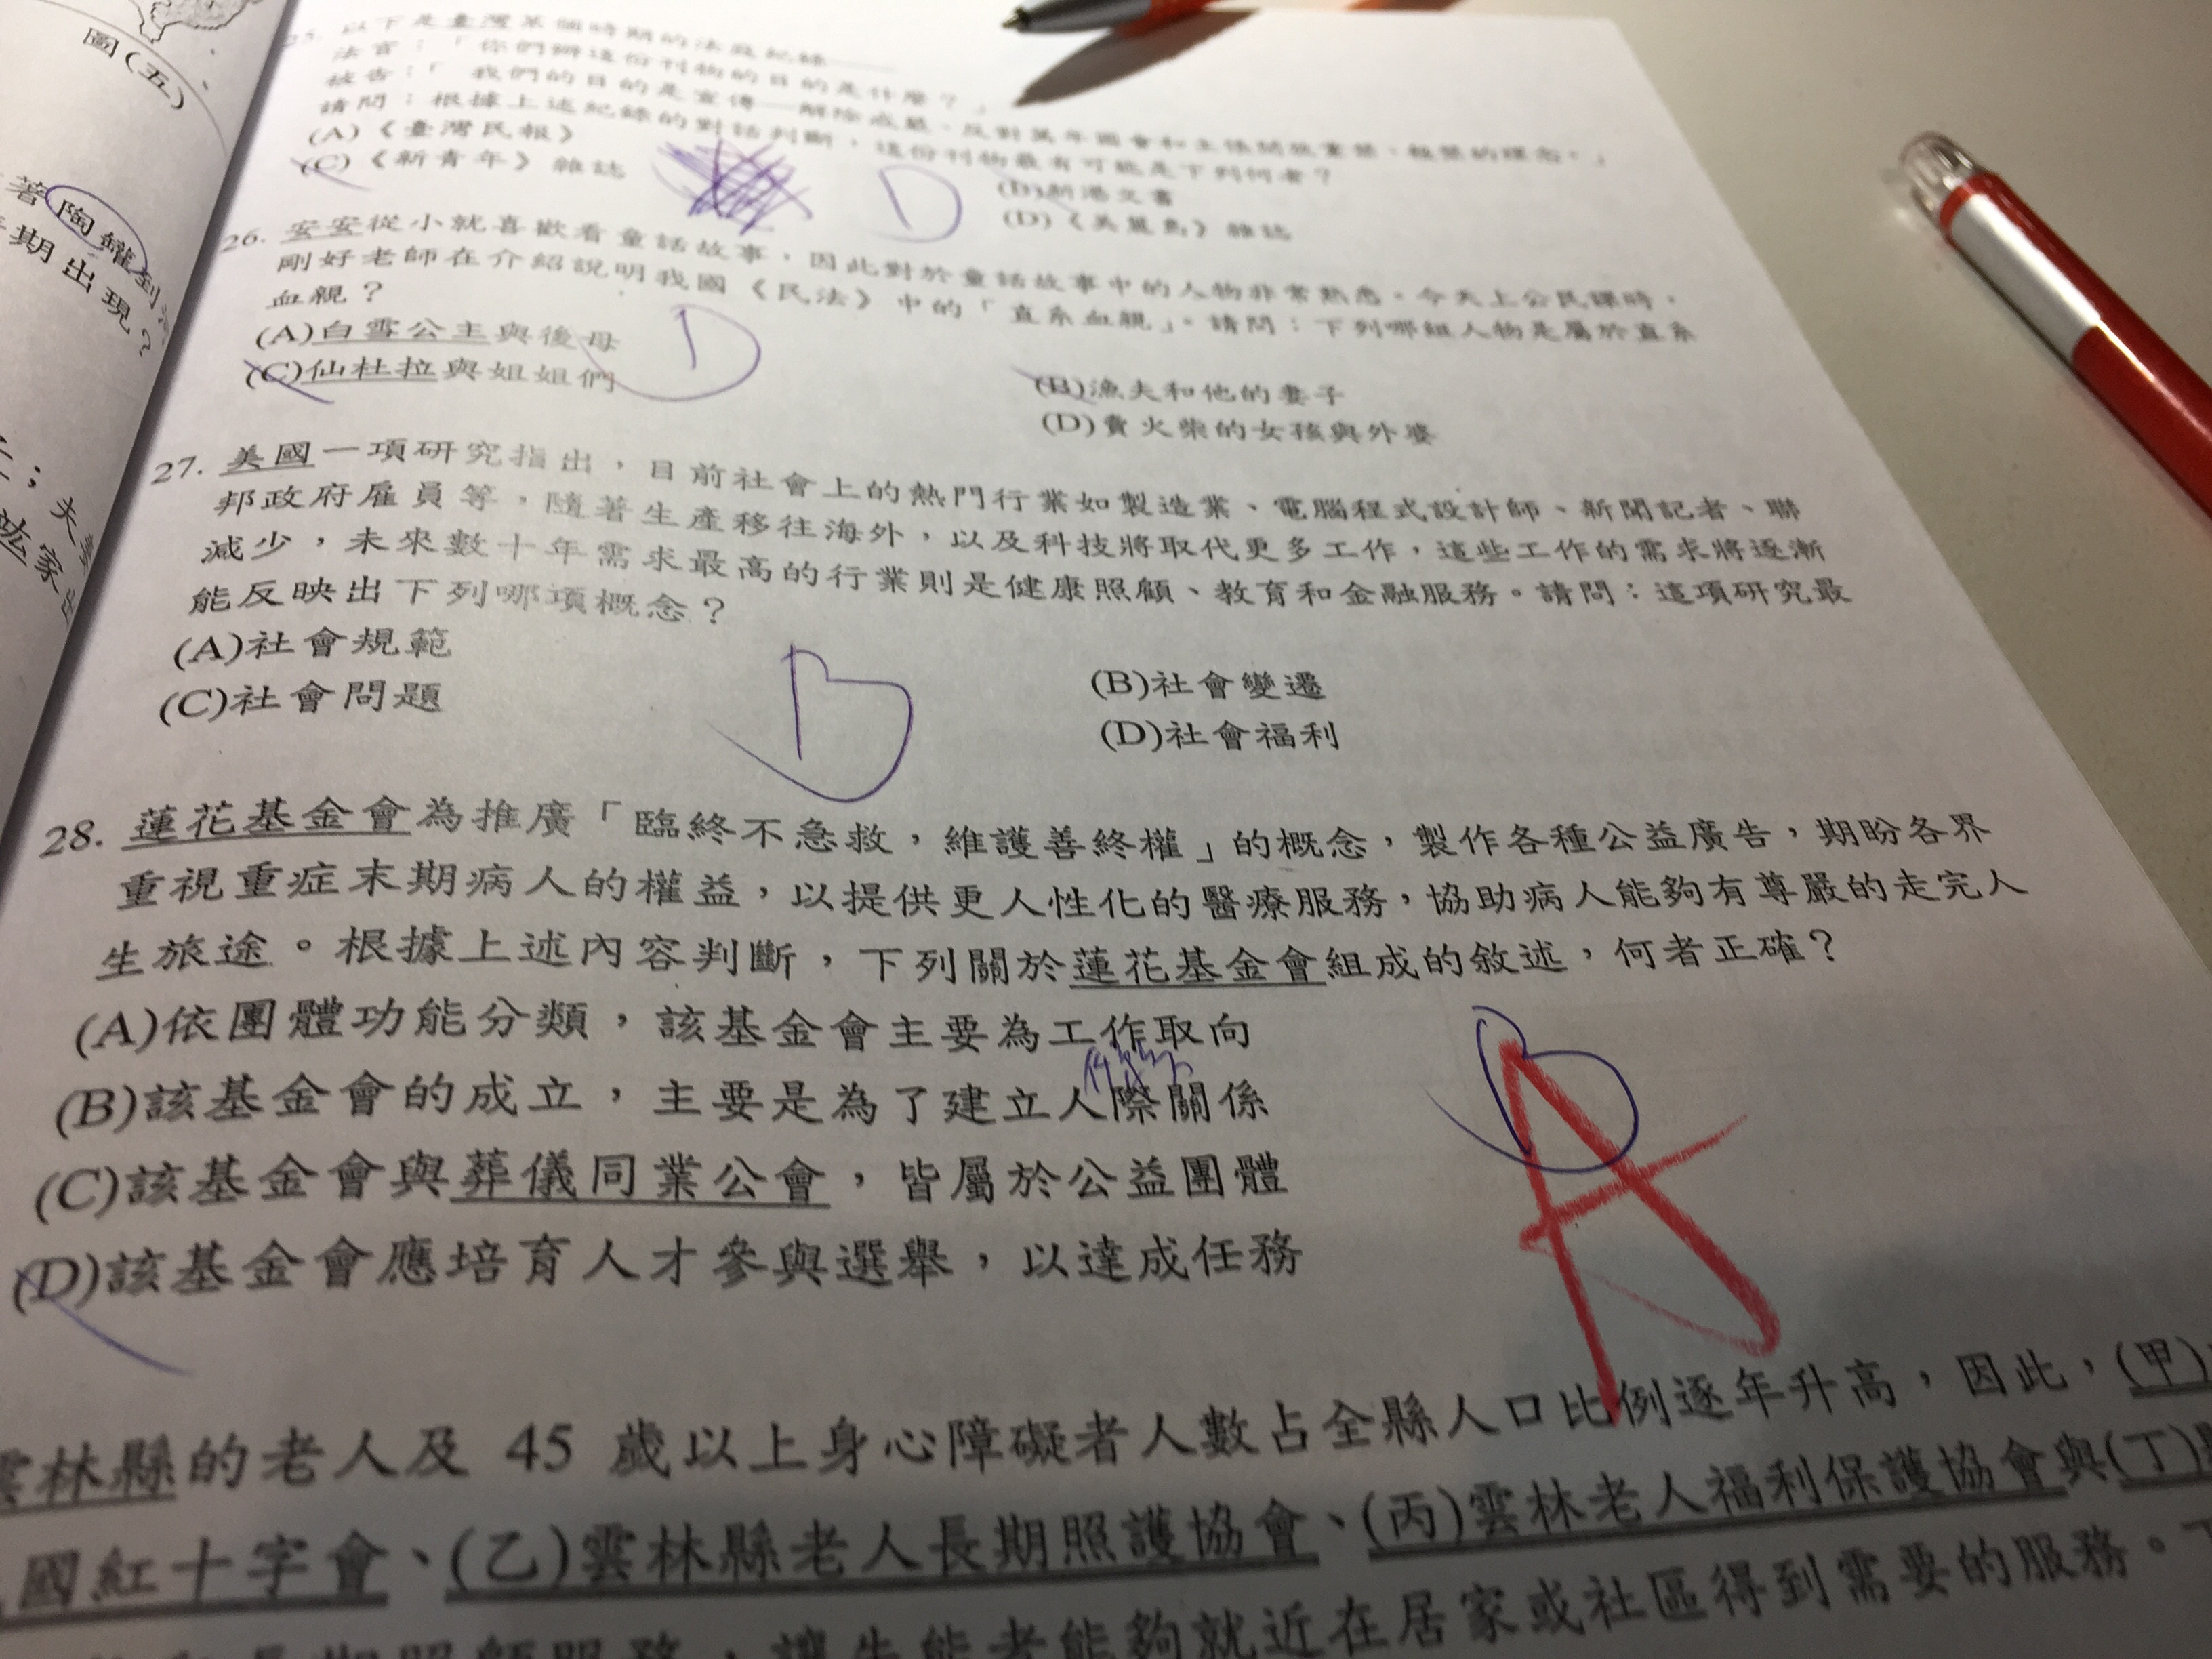 圖(五)
著陶罐到
期出現？
25. 以下是臺灣某個時期的法庭紀錄——
法官：「你們辦這份刊物的目的是什麼？」
被告：「我們的目的是宣傳——解除戒嚴、反對萬年國會和主張開放黨禁、報禁的理念。」
請問：根據上述紀錄的對話判斷，這份刊物最有可能是下列何者？
(A)《臺灣民報》
(B)新港文書
(C)《新青年》雜誌
(D)《美麗島》雜誌
D
26. 安安從小就喜歡看童話故事，因此對於童話故事中的人物非常熟悉。今天上公民課時，
剛好老師在介紹說明我國《民法》中的「直系血親」。請問：下列哪組人物是屬於直系
血親？
(A)白雪公主與後母
(B)漁夫和他的妻子
(C)仙杜拉與姐姐們
(D)賣火柴的女孩與外婆
D
27. 美國一項研究指出，目前社會上的熱門行業如製造業、電腦程式設計師、新聞記者、聯
邦政府雇員等，隨著生產移往海外，以及科技將取代更多工作，這些工作的需求將逐漸
減少，未來數十年需求最高的行業則是健康照顧、教育和金融服務。請問：這項研究最
能反映出下列哪項概念？
(A)社會規範
(B)社會變遷
(C)社會問題
(D)社會福利
B
28. 蓮花基金會為推廣「臨終不急救，維護善終權」的概念，製作各種公益廣告，期盼各界
重視重症末期病人的權益，以提供更人性化的醫療服務，協助病人能夠有尊嚴的走完人
生旅途。根據上述內容判斷，下列關於蓮花基金會組成的敘述，何者正確？
(A)依團體功能分類，該基金會主要為工作取向
(B)該基金會的成立，主要是為了建立人際關係
(C)該基金會與葬儀同業公會，皆屬於公益團體
(D)該基金會應培育人才參與選舉，以達成任務
B
A
雲林縣的老人及 45 歲以上身心障礙者人數占全縣人口比例逐年升高，因此，(甲)
國紅十字會、(乙)雲林縣老人長期照護協會、(丙)雲林老人福利保護協會與(丁)
服務，讓失能者能夠就近在居家或社區得到需要的服務。